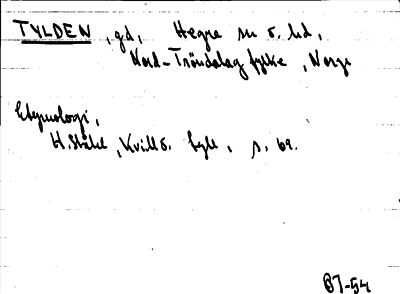 TYLDEN, gd, Hegre sn o. hd,
Nord-Tröndelag fylke, Norge
Etymologi,
H. Ståhl, Kvill o. tyll, s. 69.
BJ-54